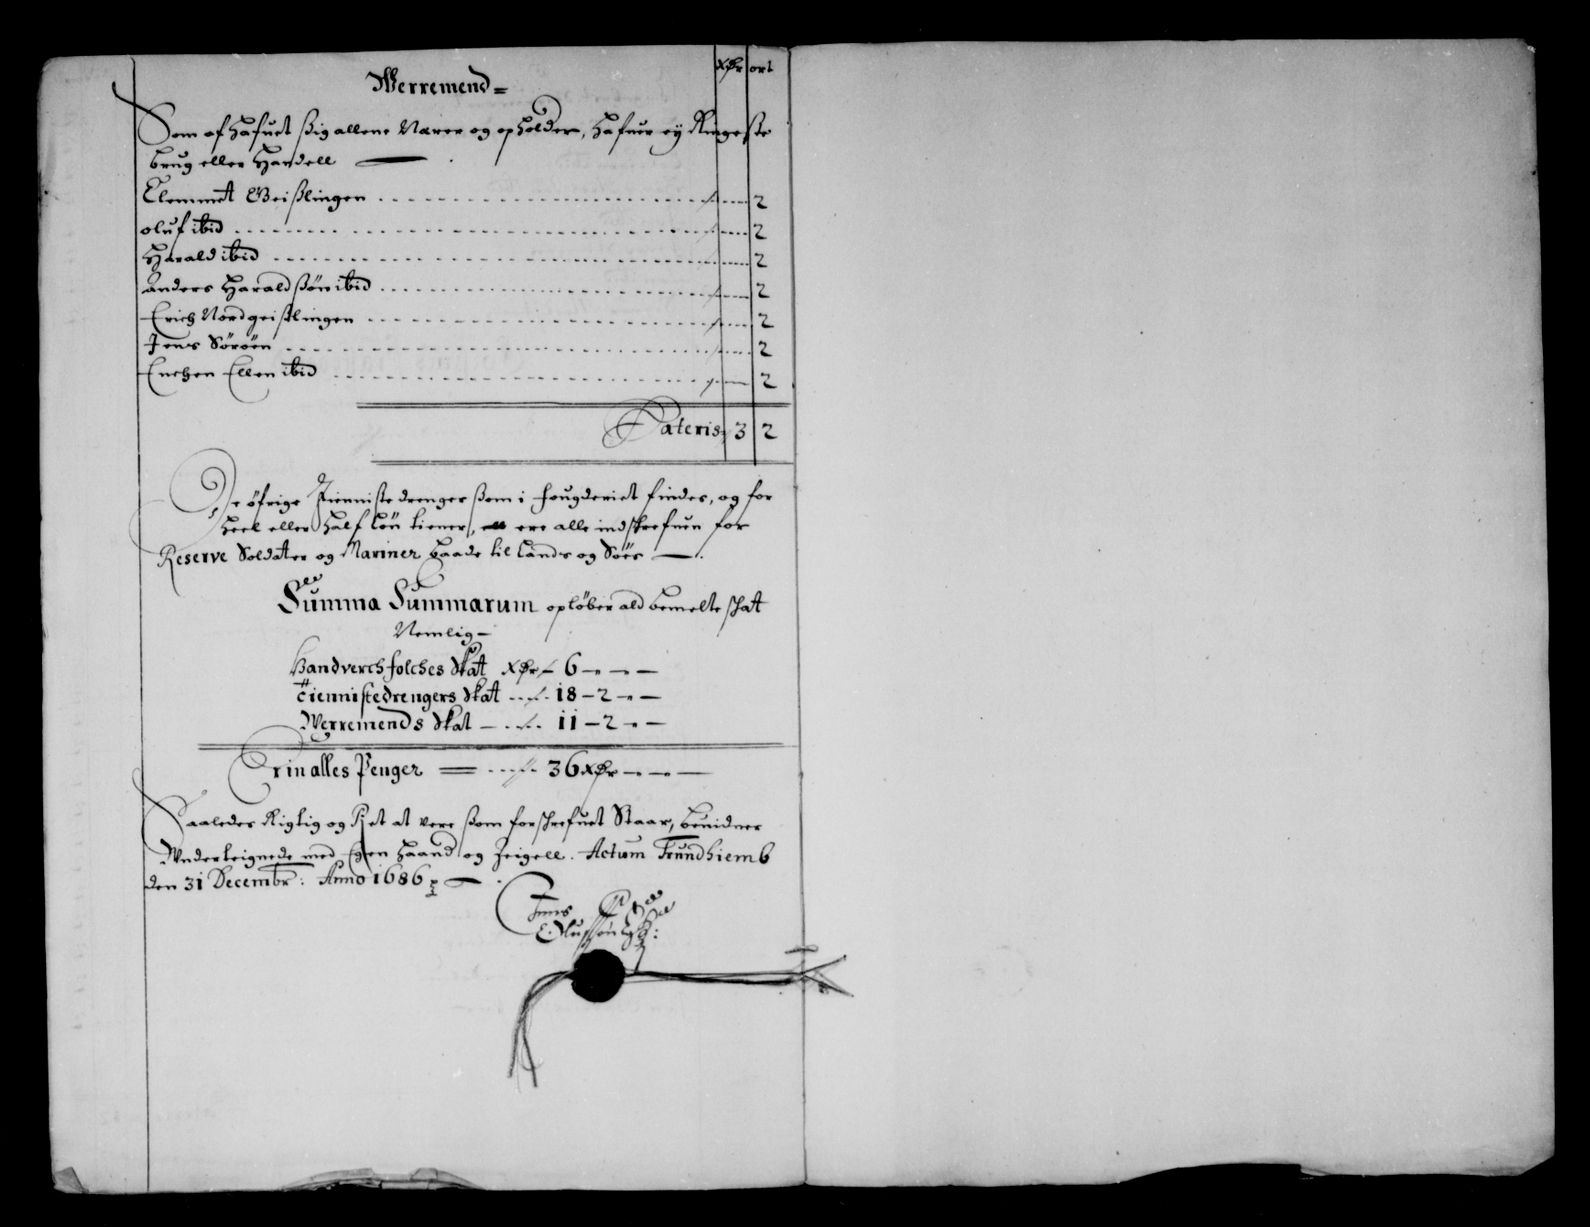 Werremend =
Rdr ort
Som af hafuet ßig allene Nærer og opholder, hafuer ej Ringeste
brug eller Handell
Clemmet Geißlingen 2
oluf ibid 2
Harald ibid 2
Anders Haraldßøn ibid 2
Erich Nordgeißlingen 2
Jens Sørøen 2
Enchen Ellen ibid 2
Lateris 3 2
De øfrige Tienniste drenger ßom i fougderiet findes, og for
heel eller half løn tiener, ere alle indskrefuen for
Reserve Soldater og Mariner baade til Lands og Søes
Summa Summarum opløber ald bemelte skat
Nemlig –
Handverchfolches Skat Rdr 6 – – –
Tiennistedrengers Skat 18 – 2 – –
Werremends Skat 11 – 2 – –
Er in alles Penger 36 Rdr – – –
Saaledes Rigtig og Ret at vere ßom forskrefuet Staar, beuidner
Wnderteignede med Egen haand og Zeigell. Actum Trundhiemb
den 31 Decembr: Anno 1686
Jens
Olufssøn